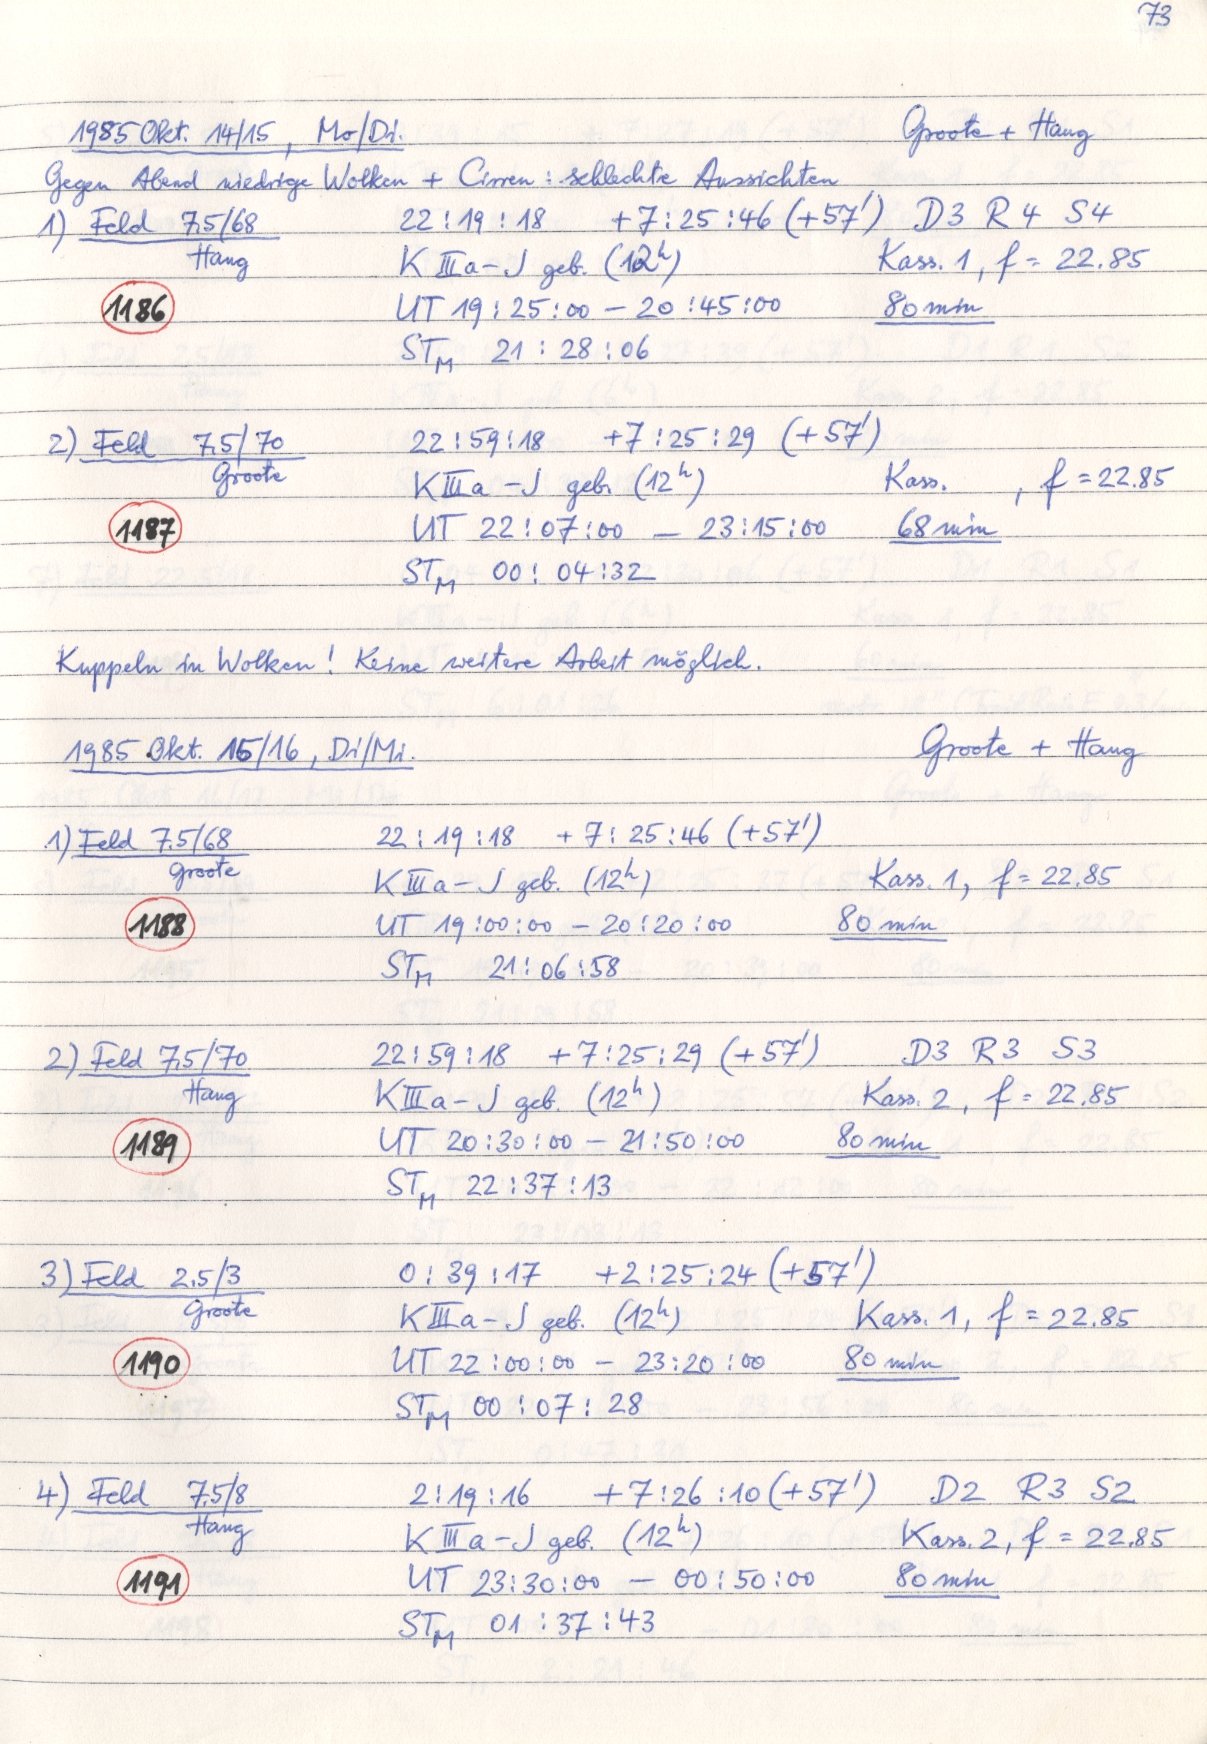 73
1985 Okt. 14/15, Mo/Di. Groote + Haug
Gegen Abend niedrige Wolken + Cirren : schlechte Aussichten
1) Feld 7.5/68 22:19:18 +7:25:46 (+57') D3 R4 S4
Haug K IIIa-J geb. (12h) Kass. 1, f = 22.85
1186 UT 19:25:00 – 20:45:00 80 min
STM 21:28:06
2) Feld 7.5/70 22:59:18 +7:25:29 (+57')
Groote K IIIa-J geb. (12h) Kass. , f = 22.85
1187 UT 22:07:00 – 23:15:00 68 min
STM 00:04:32
Kuppeln in Wolken! Keine weitere Arbeit möglich.
1985 Okt. 15/16, Di/Mi. Groote + Haug
1) Feld 7.5/68 22:19:18 +7:25:46 (+57')
Groote K IIIa-J geb. (12h) Kass. 1, f = 22.85
1188 UT 19:00:00 – 20:20:00 80 min
STM 21:06:58
2) Feld 7.5/70 22:59:18 +7:25:29 (+57') D3 R3 S3
Haug K IIIa-J geb. (12h) Kass. 2, f = 22.85
1189 UT 20:30:00 – 21:50:00 80 min
STM 22:37:13
3) Feld 2.5/3 0:39:17 +2:25:24 (+57')
Groote K IIIa-J geb. (12h) Kass. 1, f = 22.85
1190 UT 22:00:00 – 23:20:00 80 min
STM 00:07:28
4) Feld 7.5/8 2:19:16 +7:26:10 (+57') D2 R3 S2
Haug K IIIa-J geb. (12h) Kass. 2, f = 22.85
1191 UT 23:30:00 – 00:50:00 80 min
STM 01:37:43